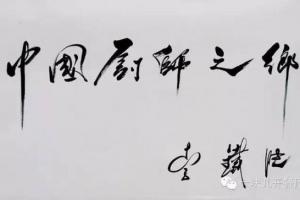 中國廚師之鄉
李鐵江